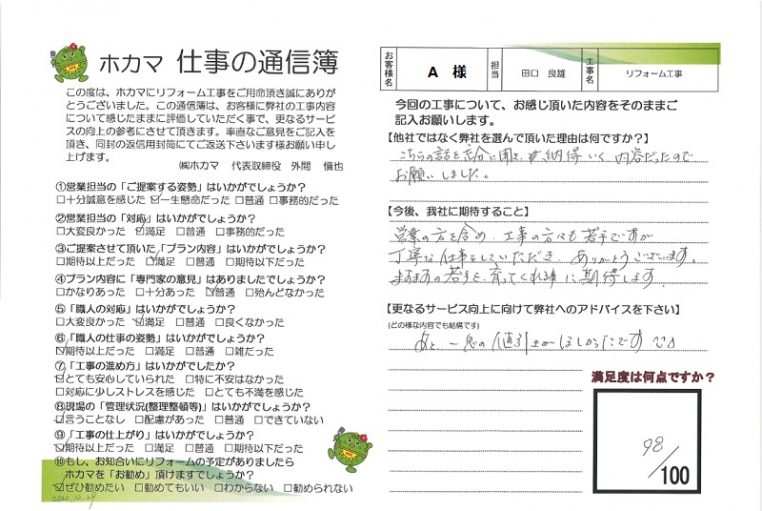 ホカマ 仕事の通信簿
この度は、ホカマにリフォーム工事をご用命頂き誠にあり
がとうございました。この通信簿は、お客様に弊社の工事内容
について感じたままに評価していただく事で、更なるサービ
スの向上の参考にさせて頂きます。率直なご意見をご記入を
頂き、同封の返信用封筒にてご返送下さいます様お願い申し
上げます。
㈱ホカマ 代表取締役 外間 慎也
①営業担当の「ご提案する姿勢」はいかがでしょうか?
□十分誠意を感じた ☑一生懸命だった □普通 □事務的だった
②営業担当の「対応」はいかがでしょうか?
□大変良かった ☑満足 □普通 □事務的だった
③ご提案させて頂いた「プラン内容」はいかがでしょうか?
□期待以上だった ☑満足 □普通 □期待以下だった
④プラン内容に「専門家の意見」はありましたでしょうか?
□かなりあった □十分あった ☑普通 □殆んどなかった
⑤「職人の対応」はいかがでしょうか?
□大変良かった ☑満足 □普通 □良くなかった
⑥「職人の仕事の姿勢」はいかがでしょうか?
☑期待以上だった □満足 □普通 □雑だった
⑦「工事の進め方」はいかがでしたか?
☑とても安心していられた □特に不安はなかった
□対応に少しストレスを感じた □とても不満を感じた
⑧現場の「管理状況(整理整頓等)」はいかがでしょうか?
☑言うことなし □配慮があった □普通 □できていない
⑨「工事の仕上がり」はいかがでしょうか?
☑期待以上だった □満足 □普通 □期待以下だった
⑩もし、お知合いにリフォームの予定がありましたら
ホカマを「お勧め」頂けますでしょうか?
☑ぜひ勧めたい □勧めてもいい □わからない □勧められない
お客様名 A 様 担当 田口 良雄 工事名 リフォーム工事
今回の工事について、お感じ頂いた内容をそのままご
記入お願いします。
【他社ではなく弊社を選んで頂いた理由は何ですか?】
こちらの話を充分に聞き 納得いく内容だったので
お願いしました。
【今後、我社に期待すること】
営業の方を含め、工事の方々も若手ですが
丁寧な仕事をしていただき ありがとうございます。
ますますの若手を育ててくれる事に期待します。
【更なるサービス向上に向けて弊社へのアドバイスを下さい】
(どの様な内容でも結構です)
あと一息の値引きがほしかったです
満足度は何点ですか?
98/100